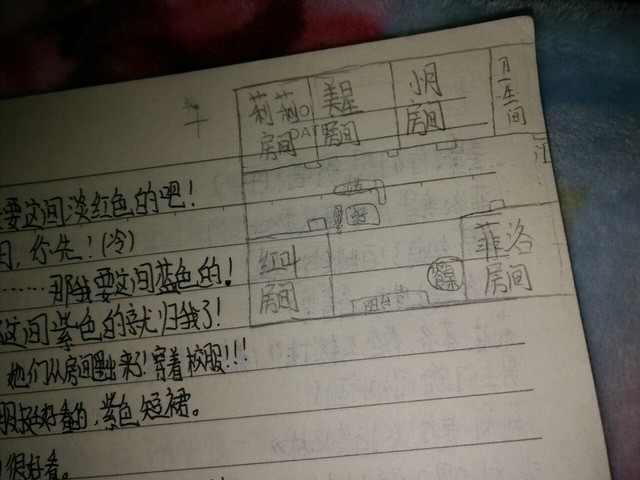 莉莉
房间
美星
房间
小月
房间
卫生间
NO
DAT
红叶
房间
菲洛
房间
阳台
要这间淡红色的吧！
你先！(冷)
……那我要这间蓝色的！
这间紫色的就归我了！
她们从房间里出来了！穿着校服!!!
服挺好看的，紫色短裙。
很好看。